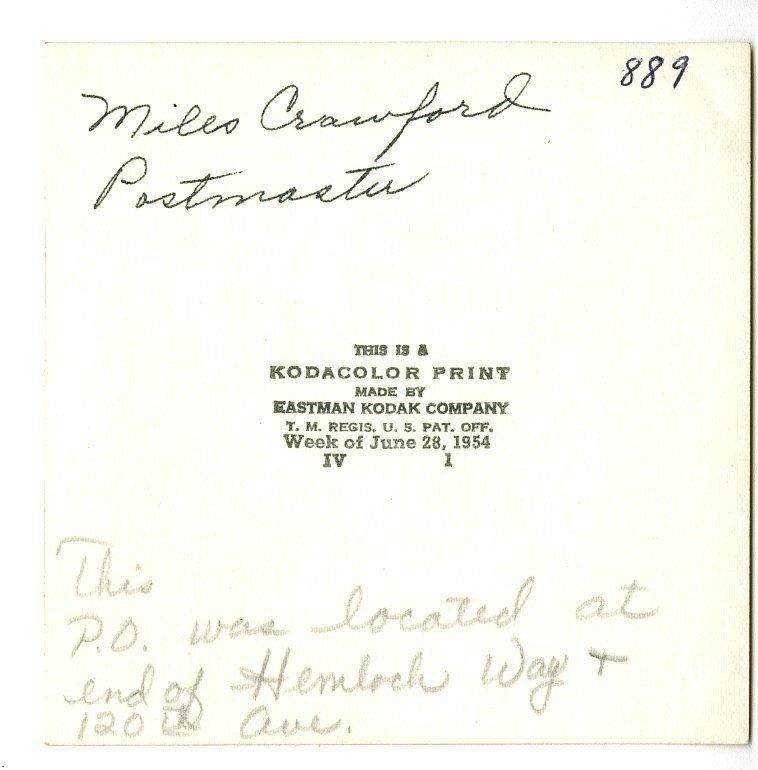 889
Miles Crawford
Postmaster
THIS IS A
KODACOLOR PRINT
MADE BY
EASTMAN KODAK COMPANY
T. M. REGIS. U. S. PAT. OFF.
Week of June 28, 1954
IV 1
This
P.O. was located at
end of Hemlock Way +
120th Ave.